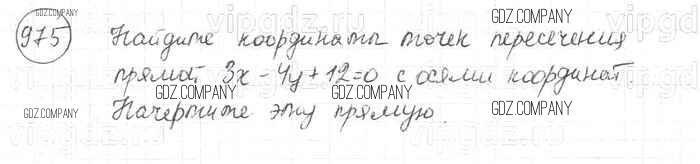 975 Найдите координаты точек пересечения
прямой 3x - 4y + 12 = 0 с осями координат
Начертите эту прямую.
GDZ.COMPANY
GDZ.COMPANY
GDZ.COMPANY
GDZ.COMPANY
GDZ.COMPANY
GDZ.COMPANY
GDZ.COMPANY
GDZ.COMPANY